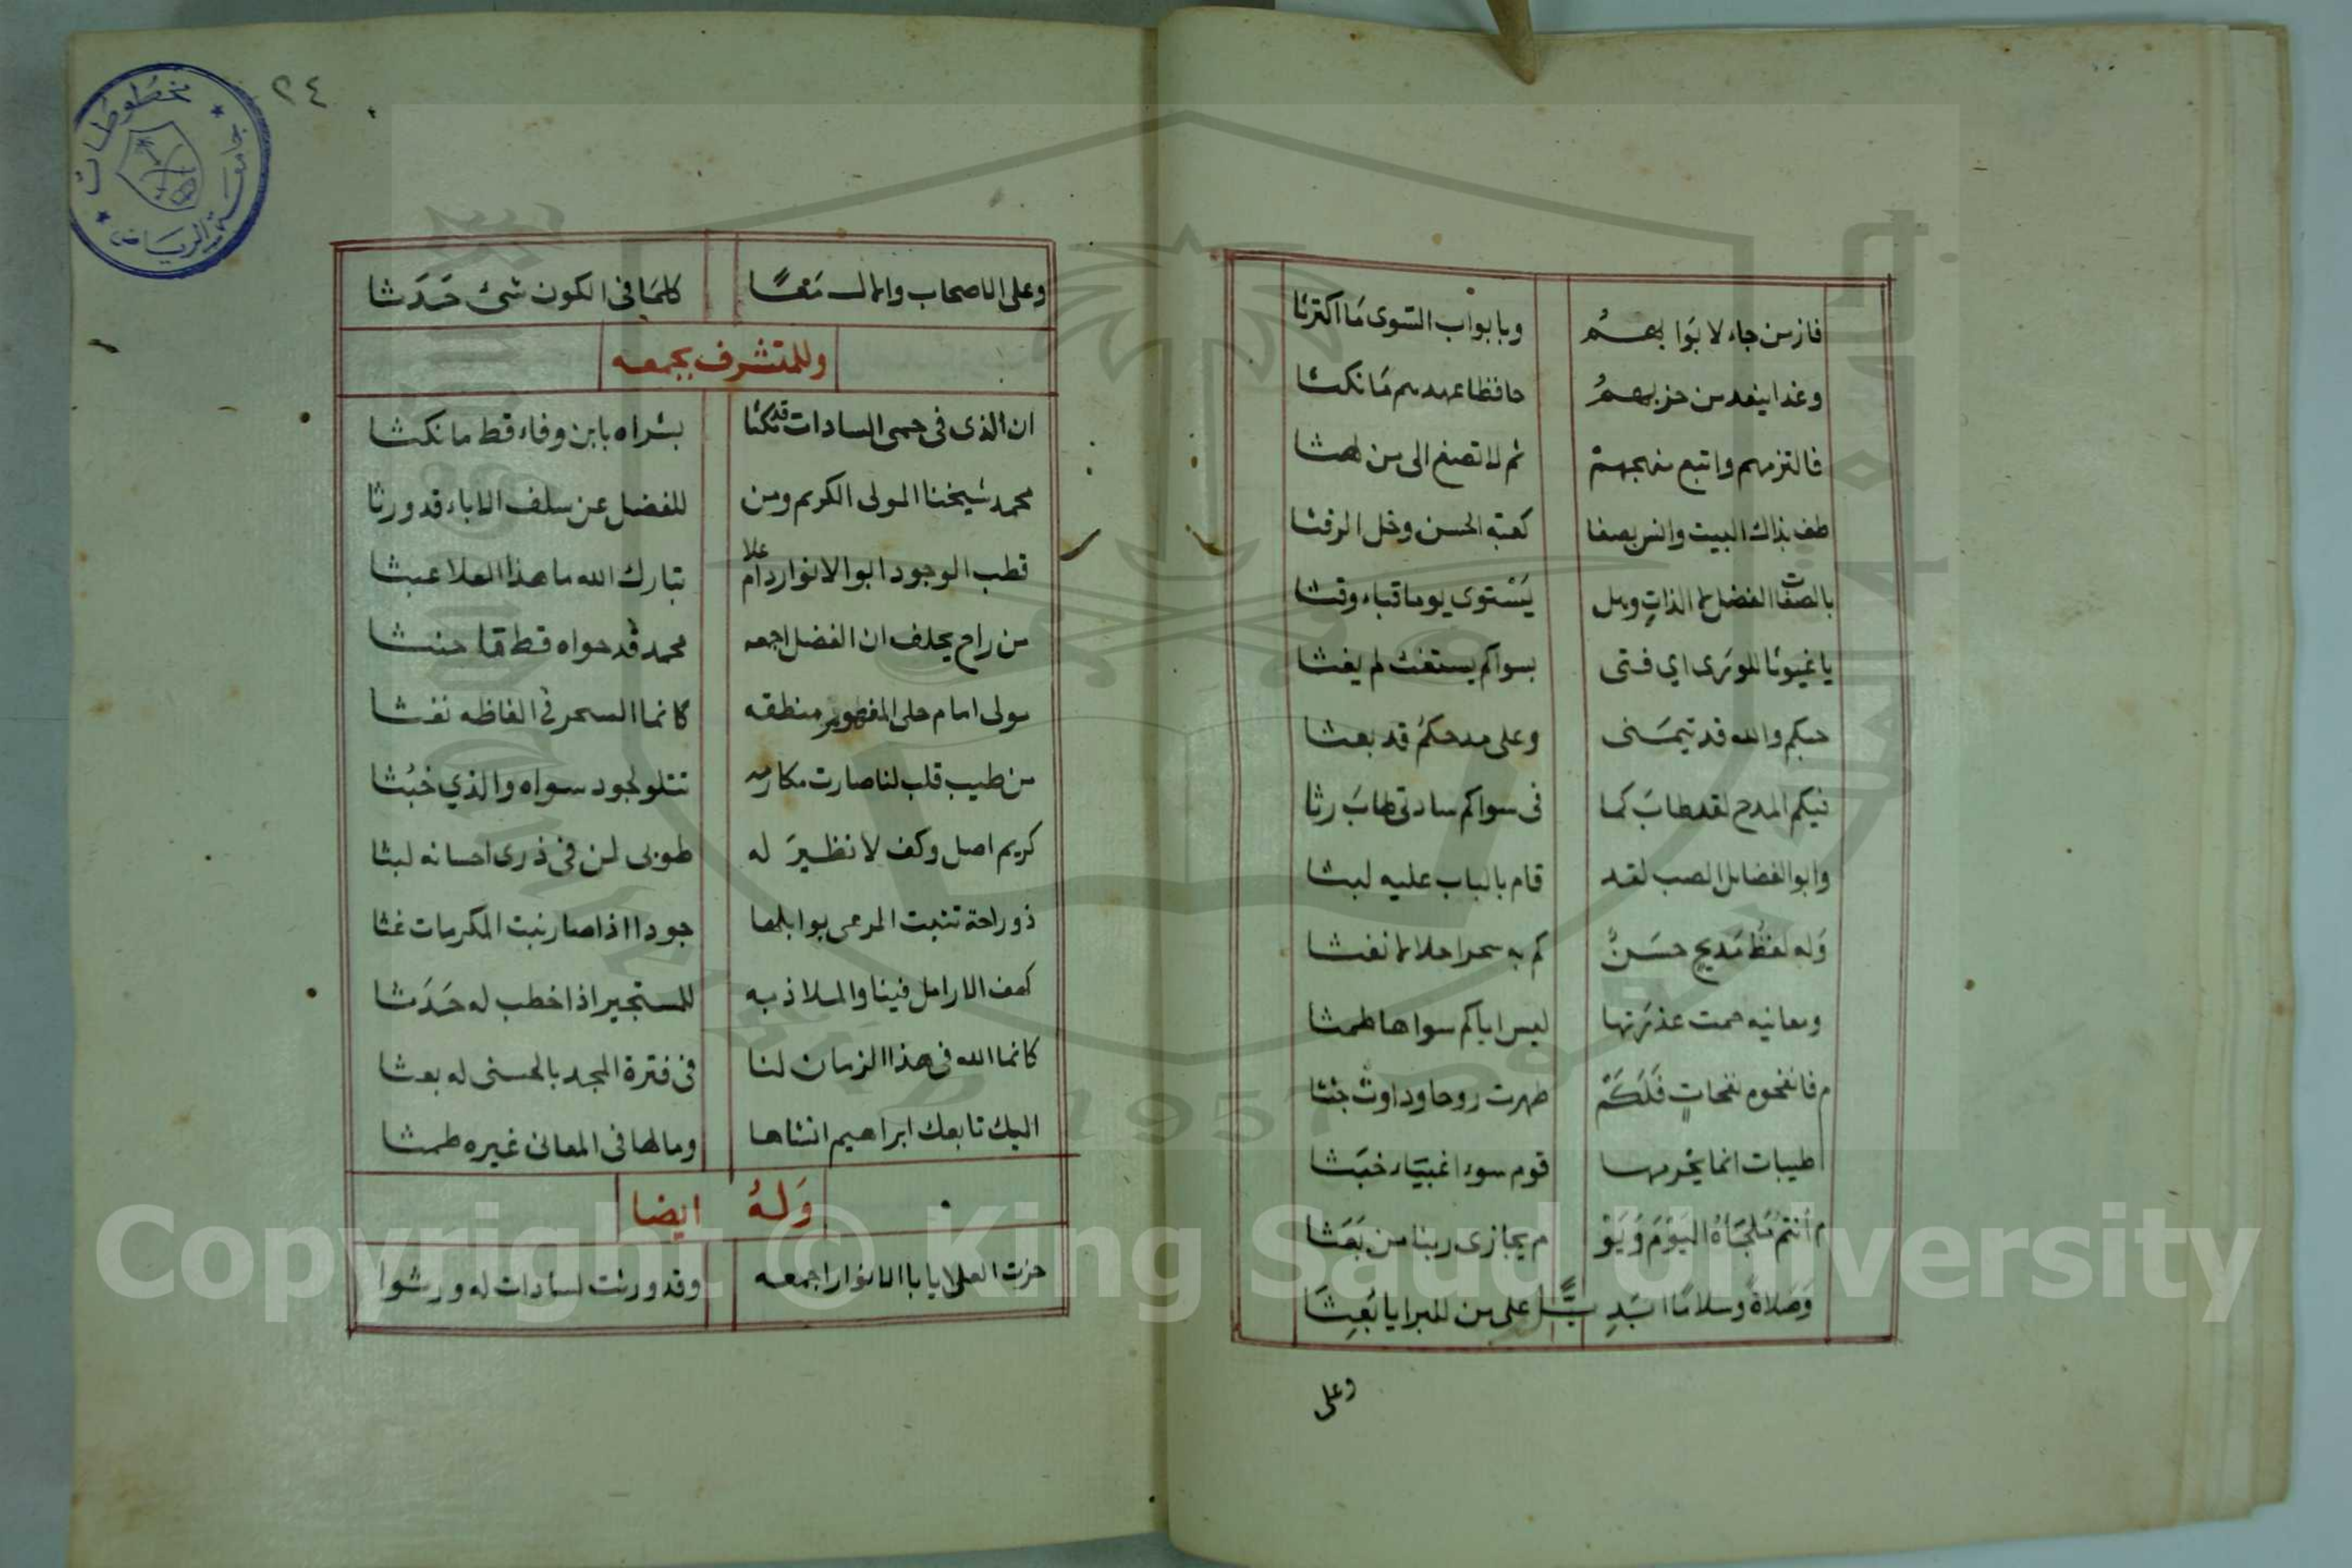 فاز من جاء لابوابهم وبابواب السوى ما اكترثا
وغدا ينعد من حزبهم حافظا عهدهم ما نكثا
فالتزمهم واتبع منهجهم ثم لا تصغ الى من لهثا
طف بذاك البيت والنس بصفا كعبة الحسن وخل الرفثا
بالصفات الفضل لا الذات وهل يستوى يوما قباء وقثا
يا غيوثا للورى اي فتى بسواكم يستغث لم يغثا
حبكم والله قد تيمنى وعلى مدحكم قد بعثا
فيكم المدح لقد طاب كما فى سواكم سادتى طاب رثا
وابو الفضايل الصب لقد قام بالباب عليه لبثا
وله لفظ مديح حسن كم به سحرا حلالا نفثا
ومعانيه حمت عذرتها ليس اياكم سواها طمثا
م فانفحوه نفحات فلكم طهرت روحا وداوت جثثا
طيبات انما يحرمها قوم سوء اغبياء خبثا
م أنتم ملجاه اليوم ويو م يجازى ربنا من بعثا
وصلاة وسلاما ابديـــا على من للبرايا بعثا
وعلى
٢٤
مخطوطات
جامعة الرياض
وعلى الاصحاب والال معا كلما فى الكون شئ حدثا
وللمتشرف بجمعه
ان الذى فى حمى السادات قد مكثا بشراه بابن وفاء قط ما نكثا
محمد شيخنا المولى الكريم ومن للفضل عن سلف الاباء قد ورثا
قطب الوجود ابو الانوار دام علا تبارك الله ما هذا العلا عبثا
من راح يحلف ان الفضل اجمعه محمد قد حواه قط ما حنثا
مولى امام حلى المفهوم منطقه كانما السحر فى الفاظه نفثا
من طيب قلب لنا صارت مكارمه تتلو لجود سواه والذي خبثا
كريم اصل وكف لا نظير له طوبى لمن فى ذرى احسانه لبثا
ذو راحة تنبت المرعى بوابلها جودا اذا صار نبت المكرمات غثا
كهف الارامل فينا والملاذ به للمستجير اذا خطب له حدثا
كانما الله فى هذا الزمان لنا فى فترة المجد بالحسنى له بعثا
اليك تابعك ابراهيم انشاها وما لها فى المعانى غيره طمثا
وله ايضا
حزت العلا يا با الانوار اجمعه وقد ورثت لسادات له ورثوا
Copyright © King Saud University
1957